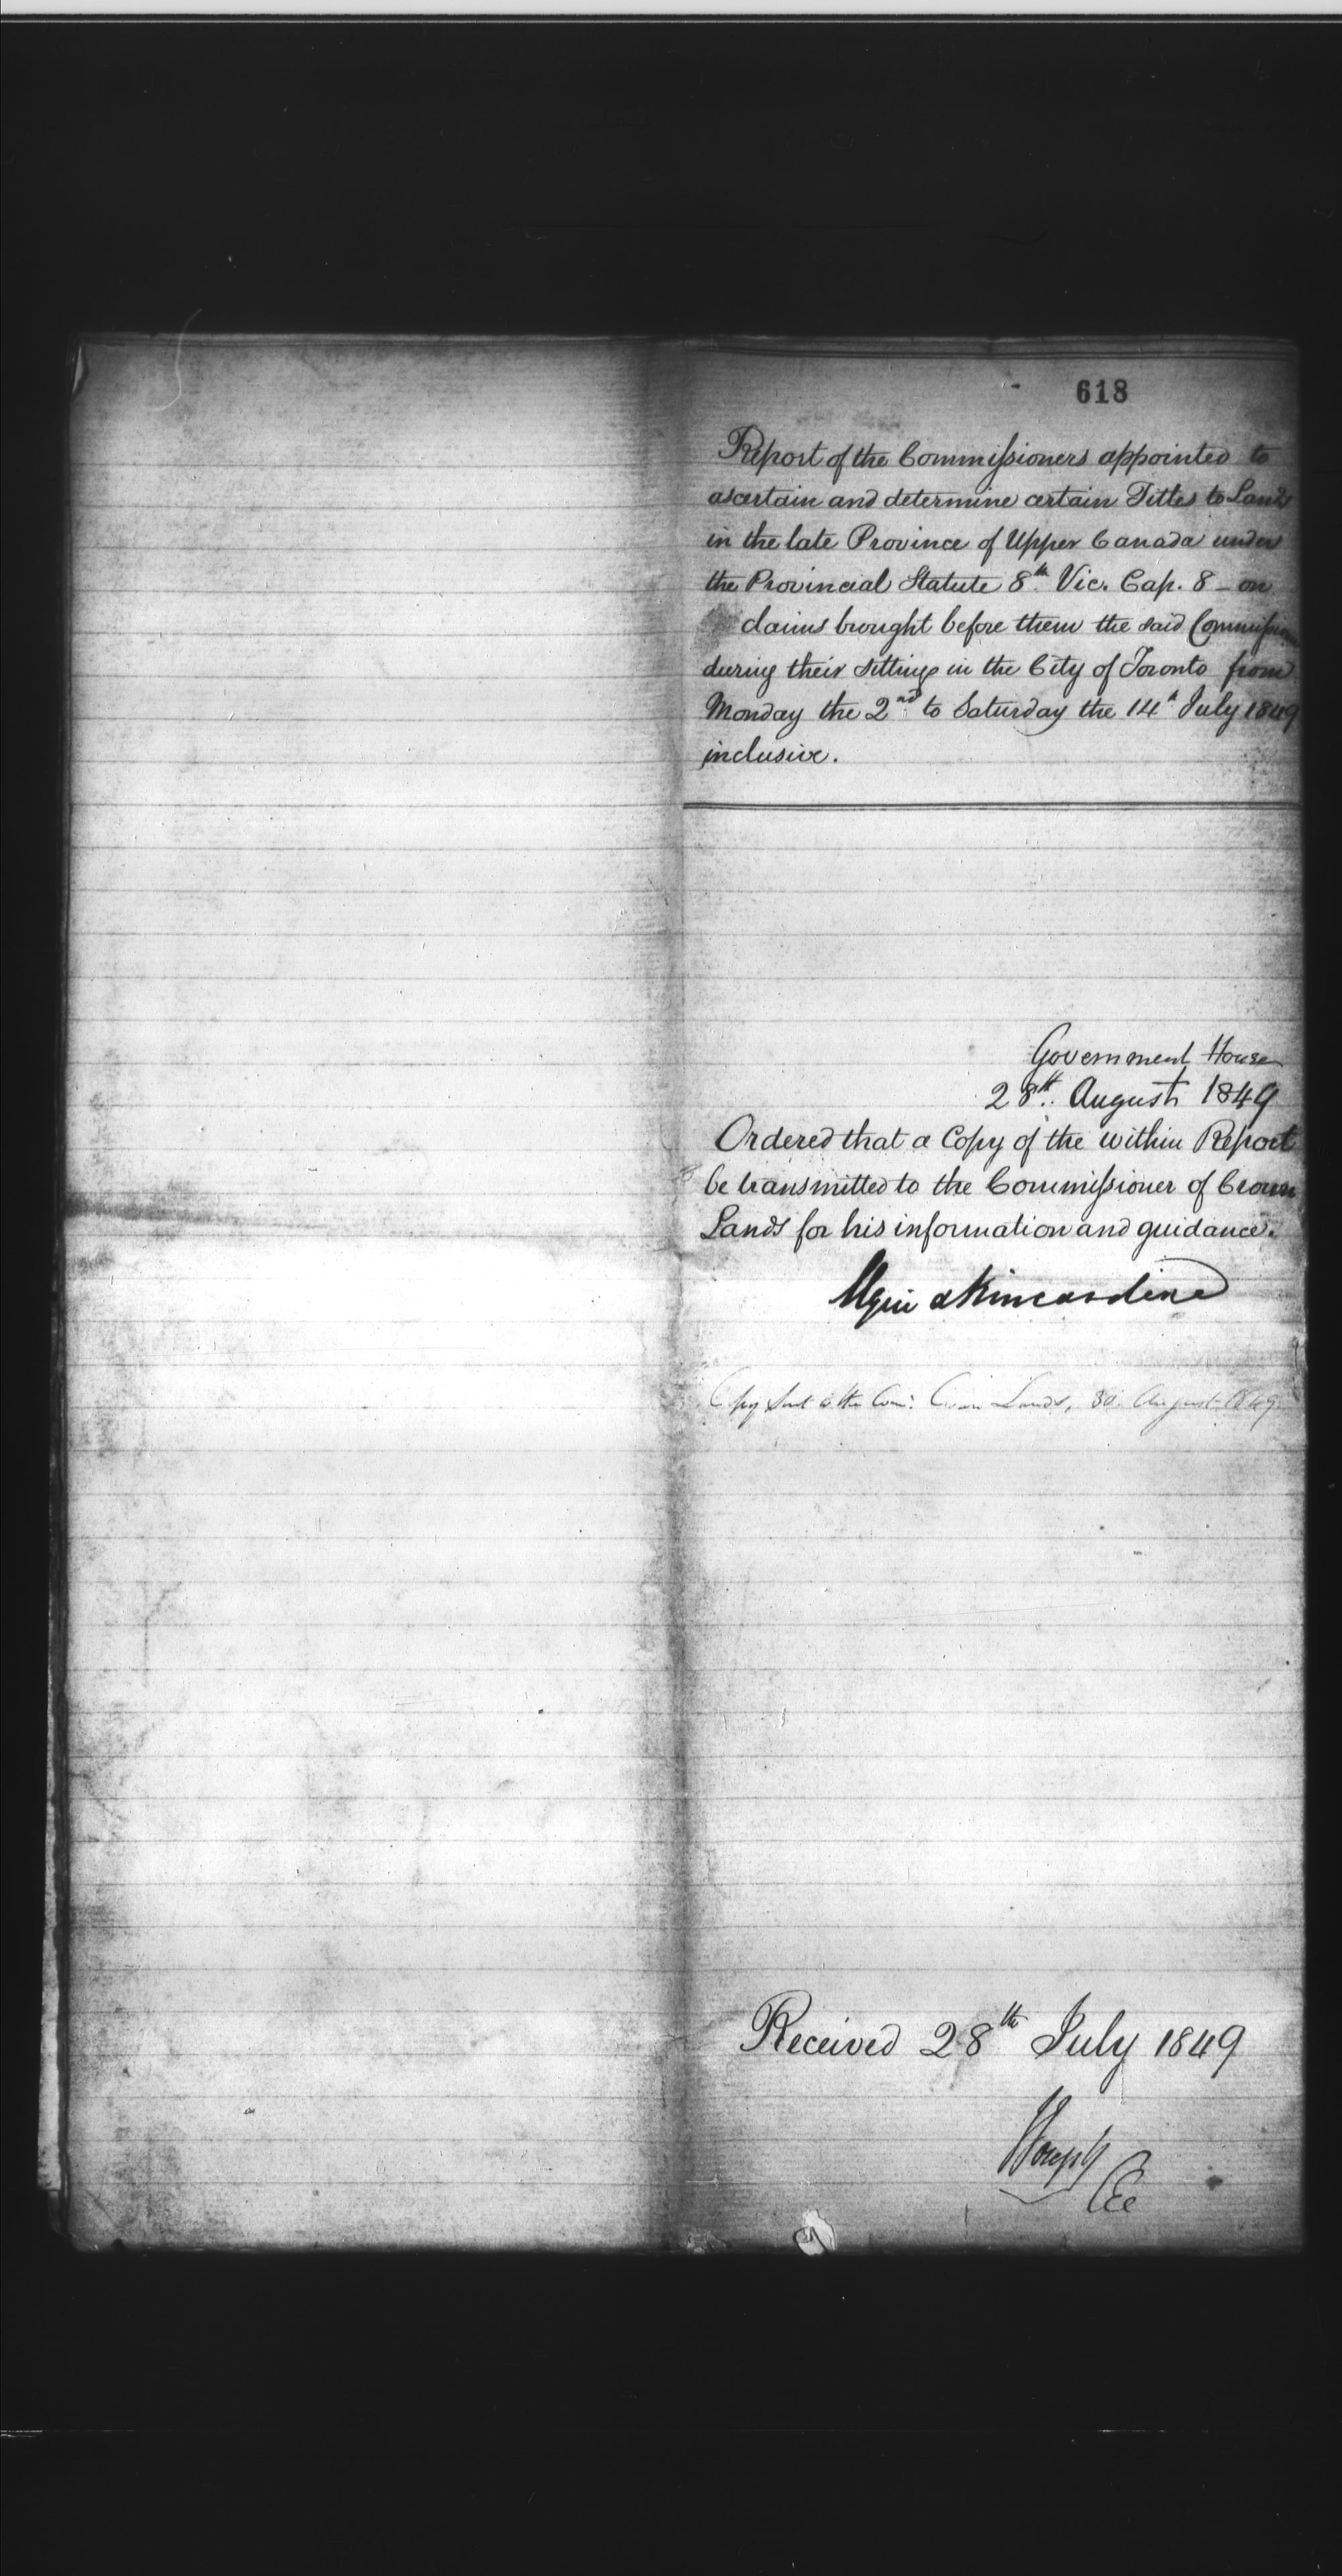 618
Report of the Commissioners appointed to
ascertain and determine certain Titles to Lands
in the late Province of Upper Canada under
the Provincial Statute 8th Vic. Cap. 8 - on
claims brought before them the said Commissioners
during their sittings in the City of Toronto from
Monday the 2nd to Saturday the 14th July 1849
inclusive.
Government House
28th August 1849
Ordered that a Copy of the within Report
be transmitted to the Commissioner of Crown
Lands for his information and guidance.
Elgin & Kincardine
Copy sent to the Com: Crown Lands, 30 August 1849
Received 28th July 1849
Joseph
CEC